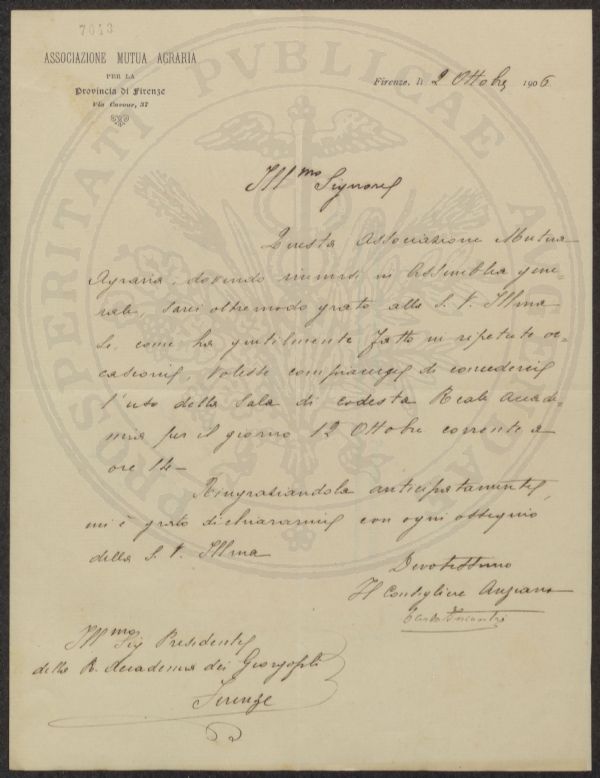 7043
ASSOCIAZIONE MUTUA AGRARIA
PER LA
Provincia di Firenze
Via Cavour, 37
Firenze, li 2 Ottobre 1906
Ill mo Signore
Questa Associazione Mutua
Agraria, dovendo riunirsi in Assemblea gene-
rale, sarei oltremodo grato alla S. V. Illma
se, come ha gentilmente fatto in ripetute oc-
casioni, volesse compiacersi di concederci
l'uso della Sala di codesta Reale Accade-
mia per il giorno 12 Ottobre corrente a
ore 14-
Ringraziandola anticipatamente,
mi è grato dichiararmi con ogni ossequio
della S. V. Illma
Devotissimo
Il Consigliere Anziano
Ill mo Sig Presidente
della R. Accademia dei Georgofili
Firenze
PROSPERITATI PUBLICAE AUGENDAE